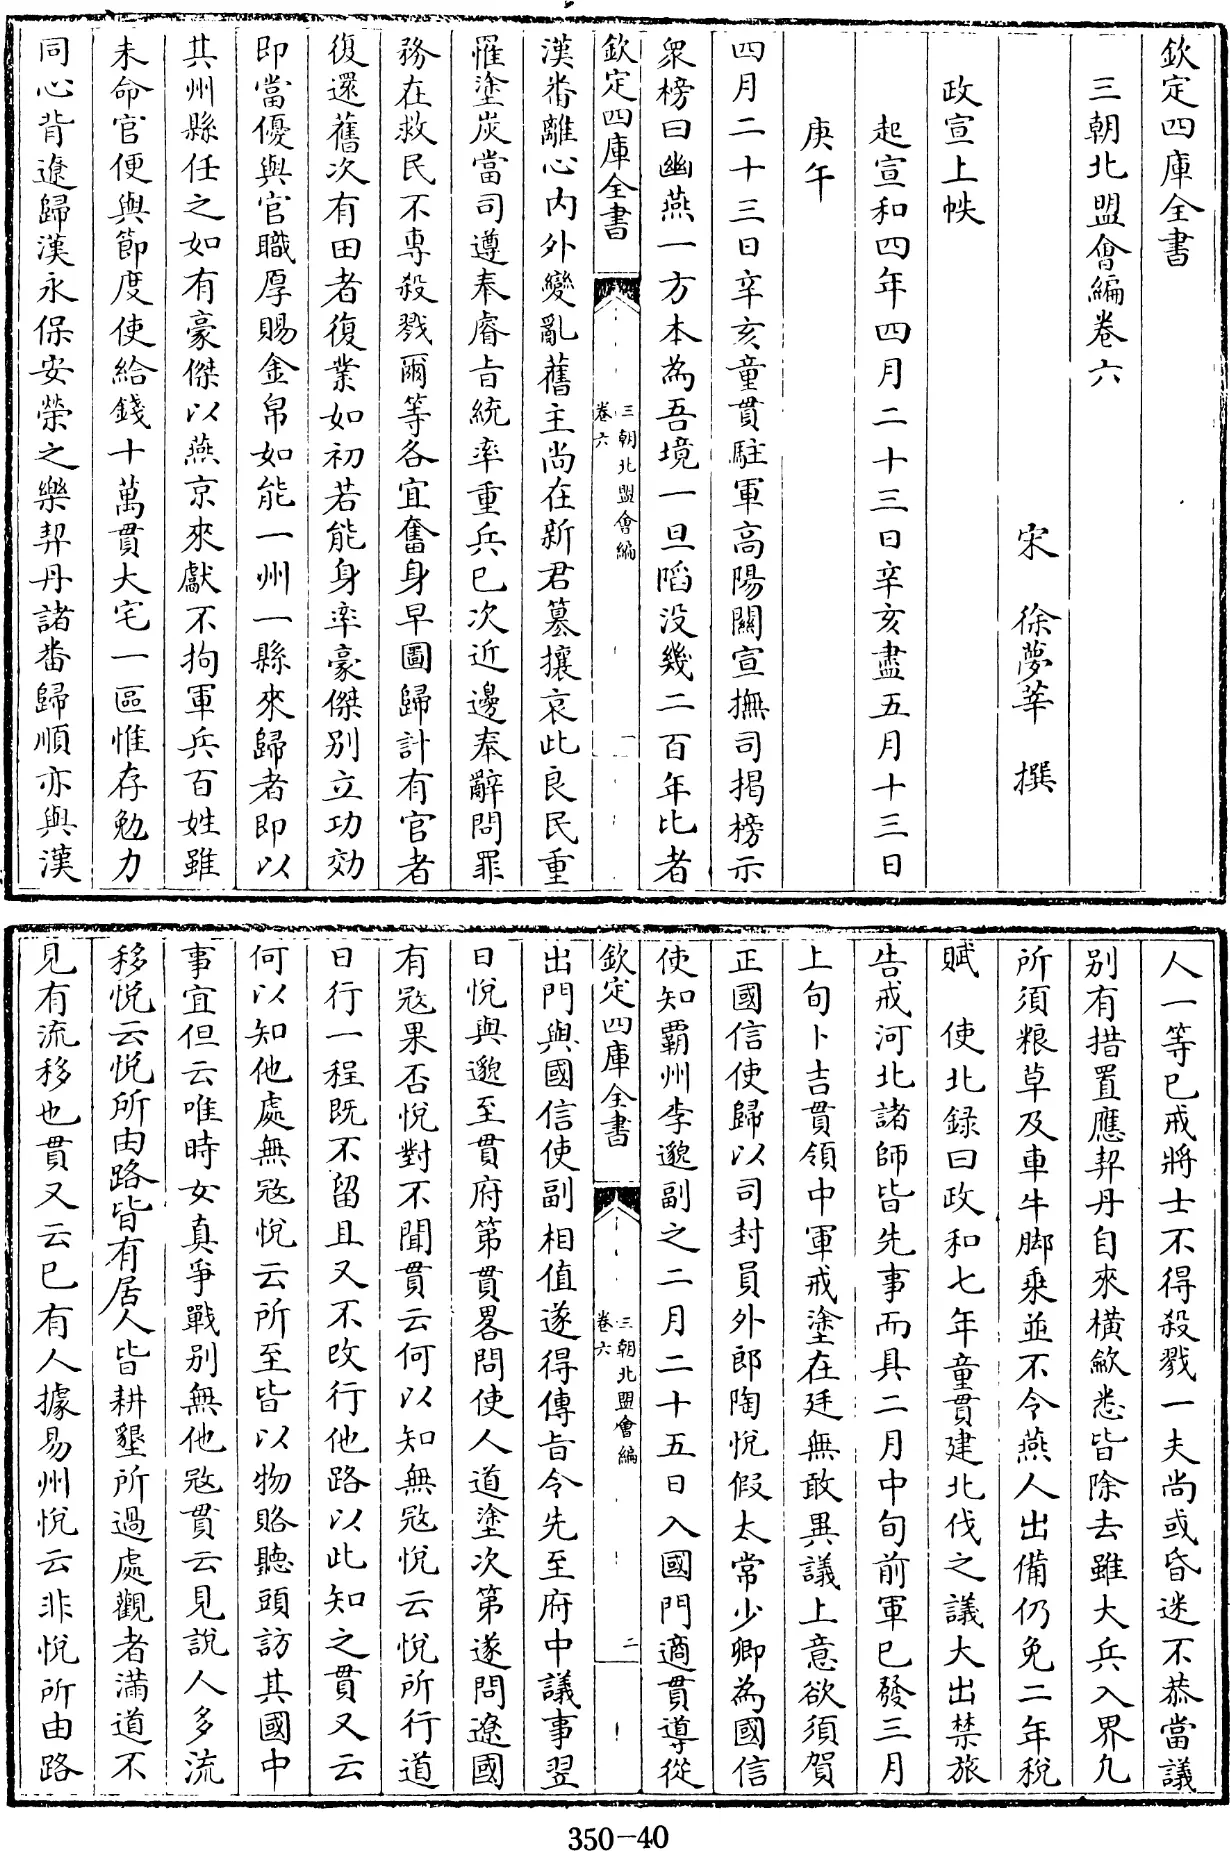 欽定四庫全書
三朝北盟會編卷六
宋 徐夢莘 撰
政宣上帙
起宣和四年四月二十三日辛亥盡五月十三日
庚午
四月二十三日辛亥童貫駐軍高陽關宣撫司揭榜示
衆榜曰幽燕一方本為吾境一旦陷没幾二百年比者
欽定四庫全書
三朝北盟會編
卷六
一
漢畨離心内外變亂舊主尚在新君簒攘哀此良民重
罹塗炭當司遵奉睿旨統率重兵已次近邊奉辭問罪
務在救民不專殺戮爾等各宜奮身早圖歸計有官者
復還舊次有田者復業如初若能身率豪傑别立功効
即當優與官職厚賜金帛如能一州一縣來歸者即以
其州縣任之如有豪傑以燕京來獻不拘軍兵百姓雖
未命官便與節度使給錢十萬貫大宅一區惟存勉力
同心背遼歸漢永保安榮之樂契丹諸畨歸順亦與漢
人一等已戒將士不得殺戮一夫尚或昏迷不恭當議
别有措置應契丹自來横歛悉皆除去雖大兵入界凡
所須粮草及車牛脚乘並不令燕人出備仍免二年税
賦 使北録曰政和七年童貫建北伐之議大出禁旅
告戒河北諸師皆先事而具二月中旬前軍已發三月
上旬卜吉貫領中軍戒塗在廷無敢異議上意欲須賀
正國信使歸以司封員外郎陶悦假太常少卿為國信
使知霸州李邈副之二月二十五日入國門適貫導從
欽定四庫全書
三朝北盟會編
卷六
二
出門與國信使副相值遂得傳旨令先至府中議事翌
日悦與邈至貫府第貫畧問使人道塗次第遂問遼國
有冦果否悦對不聞貫云何以知無冦悦云悦所行道
日行一程既不留且又不改行他路以此知之貫又云
何以知他處無冦悦云所至皆以物賂聽頭訪其國中
事宜但云唯時女真爭戰别無他冦貫云見説人多流
移悦云悦所由路皆有居人皆耕墾所過處觀者滿道不
見有流移也貫又云已有人據易州悦云非悦所由路
350-40